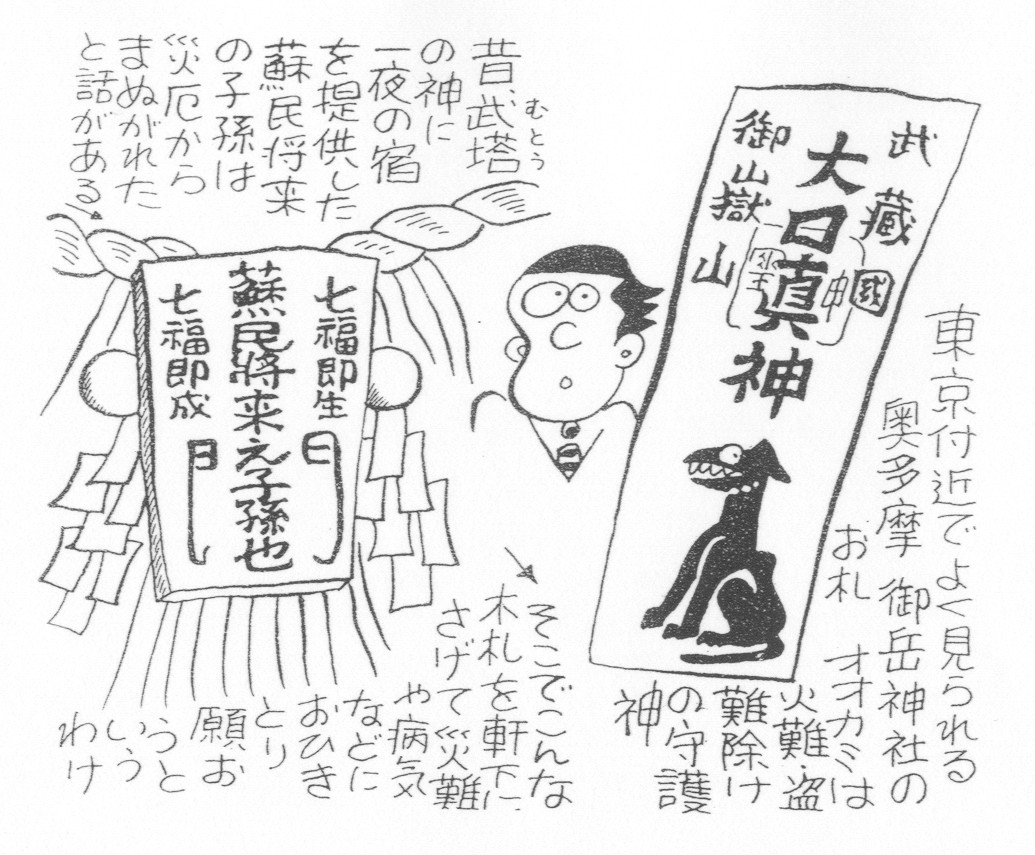 東京付近でよく見られる
奥多摩 御岳神社の
お札 オオカミは
火難・盗
難除け
の守護
神
武藏國
大口真神
御嶽山
昔、武塔
むとう
の神に
一夜の宿
を提供した
蘇民将来
の子孫は
災厄から
まぬがれた
と話がある。
七福即生
日
蘇民將来え子孫也
七福即成
日
そこでこんな
木札を軒下に、
さげて災難
や病気
などに
おひき
とり
願お
うと
いう
わけ